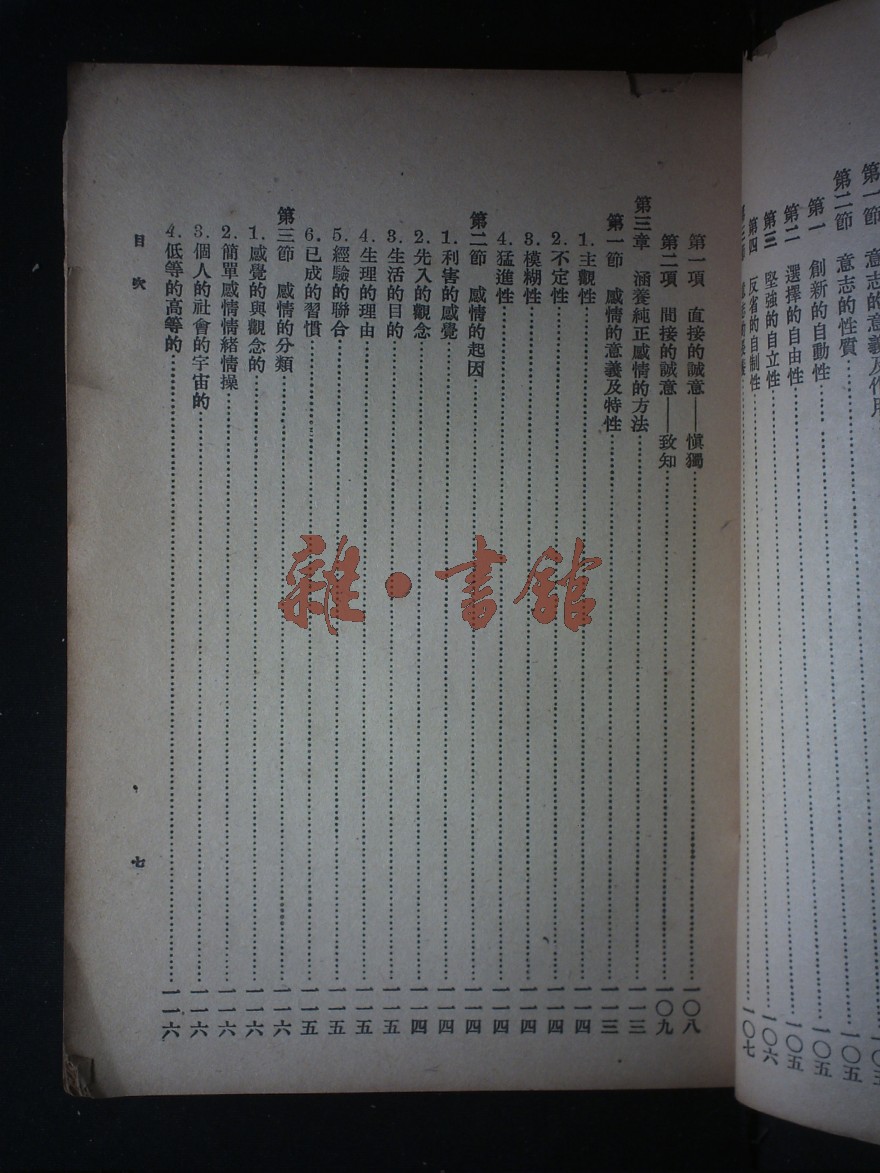 第一節 意志的意義及作用
第二節 意志的性質……一〇五
第一 創新的自動性……一〇五
第二 選擇的自由性……一〇五
第三 堅強的自立性……一〇六
第四 反省的自制性……一〇七
第一項 直接的誠意——愼獨……一〇八
第二項 間接的誠意——致知……一〇九
第三章 涵養純正感情的方法……一一三
第一節 感情的意義及特性……一一三
1.主觀性……一一四
2.不定性……一一四
3.模糊性……一一四
4.猛進性……一一四
第二節 感情的起因……一一四
1.利害的感覺……一一四
2.先入的觀念……一一四
3.生活的目的……一一五
4.生理的理由……一一五
5.經驗的聯合……一一五
6.已成的習慣……一一五
第三節 感情的分類……一一六
1.感覺的與觀念的……一一六
2.簡單感情情緒情操……一一六
3.個人的社會的宇宙的……一一六
4.低等的高等的……一一六
目次
七
雜·書館